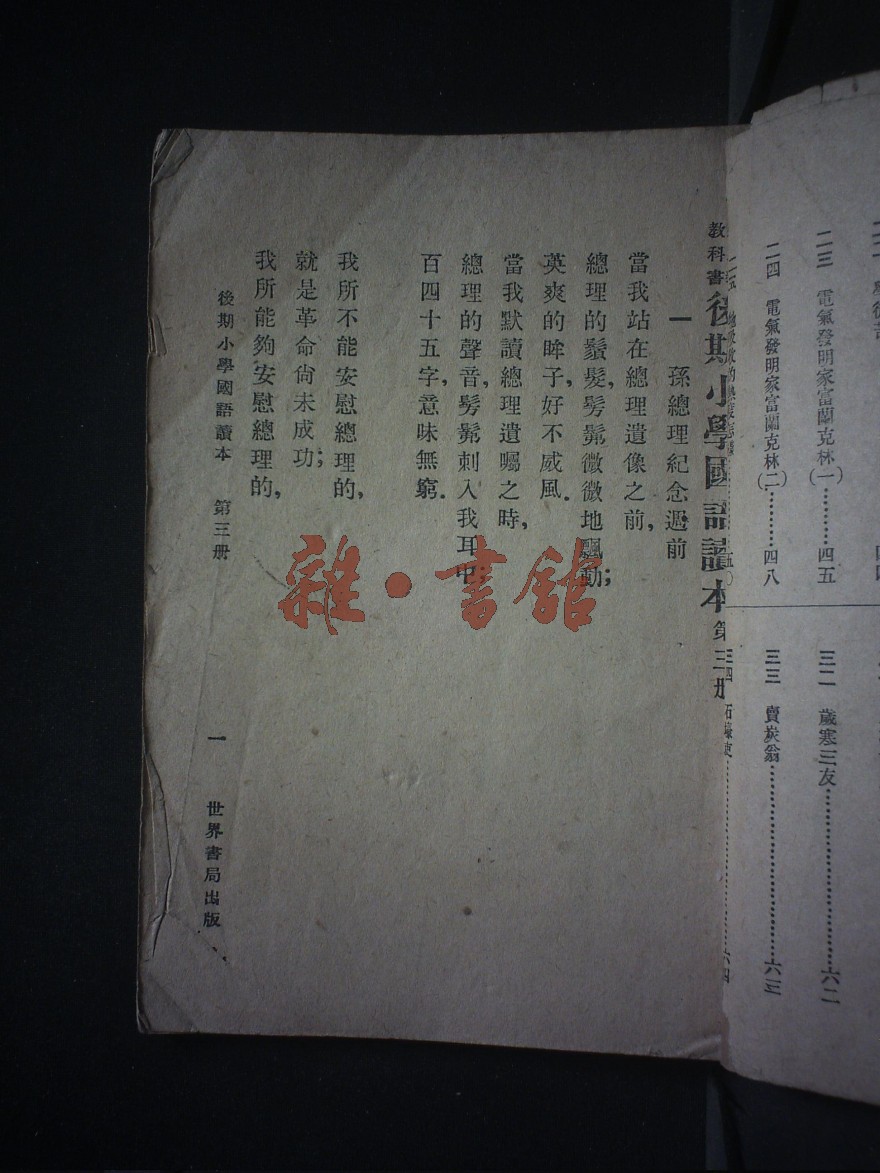 二三 電氣發明家富蘭克林(一)………四五
二四 電氣發明家富蘭克林(二)………四八
三二 歲寒三友………六二
三三 賣炭翁………六三
三四 石壕吏………六四
教科書 後期小學國語讀本 第三册
一 孫總理紀念週前
當我站在總理遺像之前,
總理的鬚髮,髣髴微微地飄動;
英爽的眸子,好不威風.
當我默讀總理遺囑之時,
總理的聲音,髣髴刺入我耳中;
百四十五字,意味無窮.
我所不能安慰總理的,
就是革命尙未成功;
我所能夠安慰總理的,
後期小學國語讀本 第三册 一 世界書局出版
雜·書館